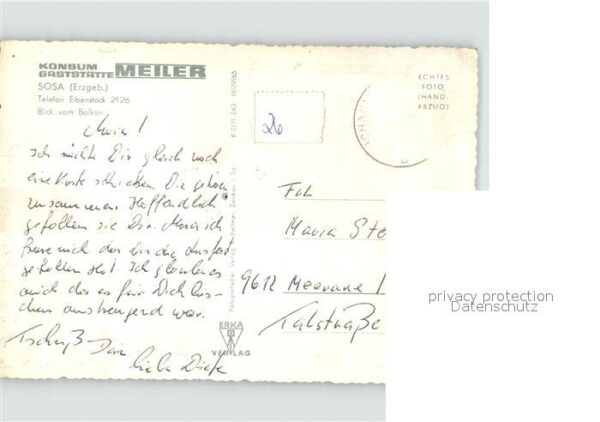 KONSUM
GASTSTÄTTE MEILER
SOSA (Erzgeb.)
Telefon Eibenstock 2126
Blick vom Balkon
ECHTES
FOTO
(HAND-
ABZUG)
26
Maria!
Ich möchte Dir gleich noch
eine Karte schicken. Die gehören
zusammen. Hoffendlich
gefallen sie Dir. Maria ich
freue mich das Dir die Ausfart
gefallen hat. Ich glaube es
auch das es für Dich bis-
chen anstrengend war.
Tschüß Dein
liebe
Frl.
Maria Ste
9612 Meerane 1
Talstraße
ERKA
VERLAG
privacy protection
Datenschutz